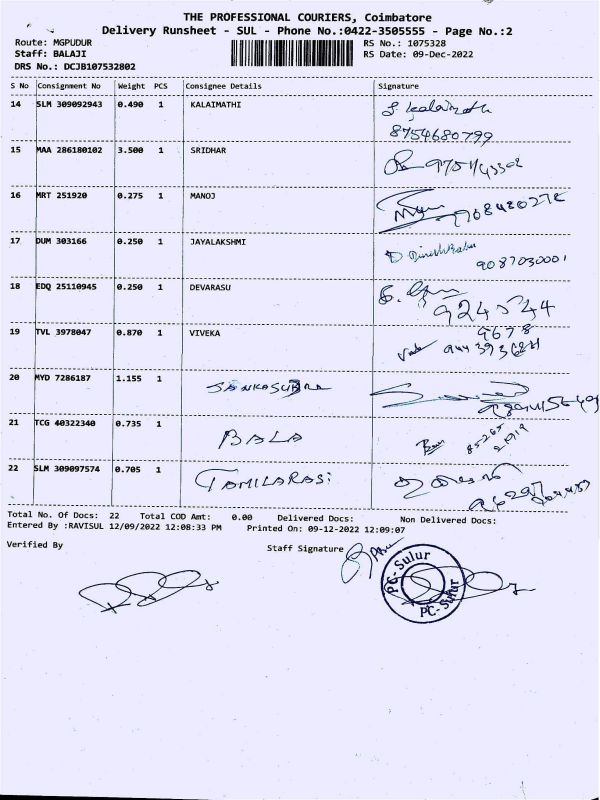 THE PROFESSIONAL COURIERS, Coimbatore
Delivery Runsheet - SUL - Phone No.:0422-3505555 - Page No.:2
Route: MGPUDUR
RS No.: 1075328
Staff: BALAJI
RS Date: 09-Dec-2022
DRS No.: DCJB107532802
S No Consignment No Weight PCS Consignee Details Signature
14 SLM 309092943 0.490 1 KALAIMATHI
8754680799
15 MAA 286180102 3.500 1 SRIDHAR
16 MRT 251920 0.275 1 MANOJ
17 DUM 303166 0.250 1 JAYALAKSHMI
9087030001
18 EDQ 25110945 0.250 1 DEVARASU
19 TVL 3978047 0.870 1 VIVEKA
20 MYD 7286187 1.155 1
21 TCG 40322340 0.735 1 BALA
22 SLM 309097574 0.705 1 TAMILARASI
Total No. Of Docs: 22 Total COD Amt: 0.00 Delivered Docs: Non Delivered Docs:
Entered By :RAVISUL 12/09/2022 12:08:33 PM Printed On: 09-12-2022 12:09:07
Verified By Staff Signature
PC-Sulur
PC-Sulur